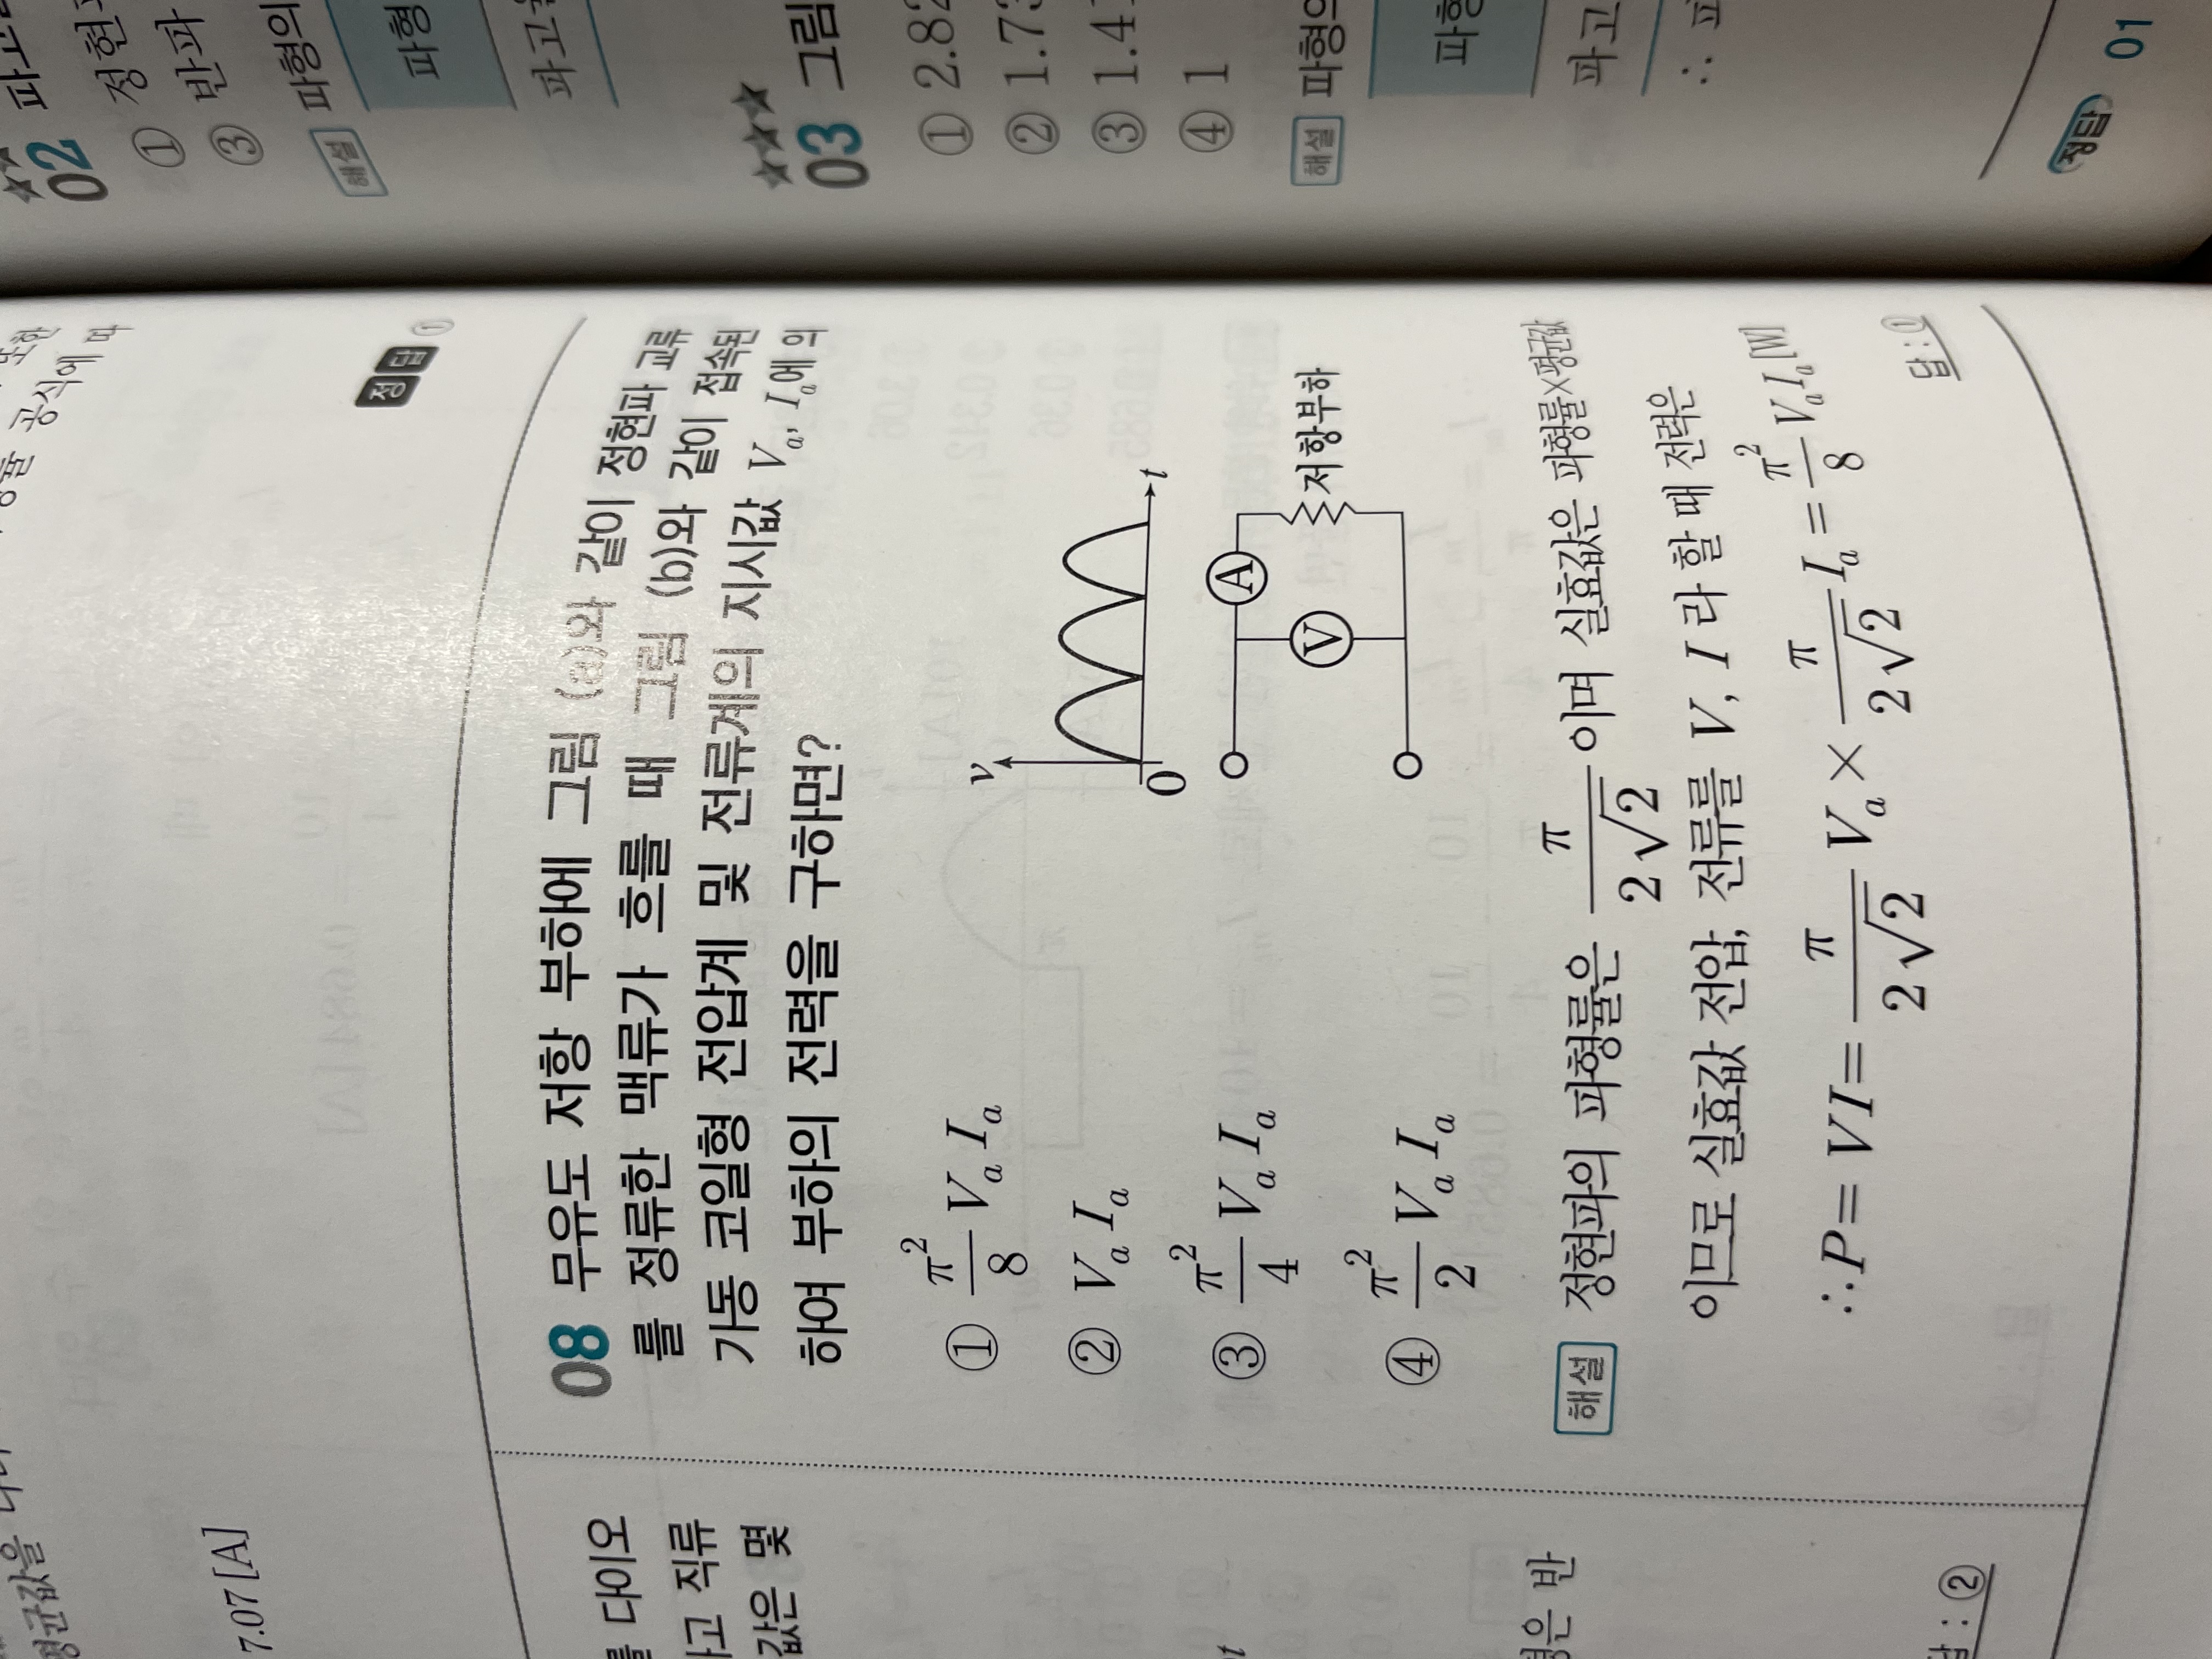 또한
공식에 따
평균값을
7.07[A]
정답 ①
를 대이오
하고 직류
값은 몇
t
형은 반
답 : ②
08 무유도 저항 부하에 그림 (a)와 같이 정현파 교류
를 정류한 맥류가 흐를 때 그림 (b)와 같이 접속된
가동 코일형 전압계 및 전류계의 지시값 Vₐ, Iₐ에 의
하여 부하의 전력을 구하면?
① π²/8 Vₐ Iₐ
② Vₐ Iₐ
③ π²/4 Vₐ Iₐ
④ π²/2 Vₐ Iₐ
v
0
t
A
V
저항부하
해설 정현파의 파형률은 π/(2√2) 이며 실효값은 파형률×평균값
이므로 실효값 전압, 전류를 V, I 라 할 때 전력은
∴ P = VI = π/(2√2) Vₐ × π/(2√2) Iₐ = π²/8 VₐIₐ [W]
답 : ①
02 파고
① 정현
③ 반파
해설 파형의
파형
파고
03 그림
① 2.82
② 1.73
③ 1.41
④ 1
해설 파형의
파형
파고
∴ 파
정답 01